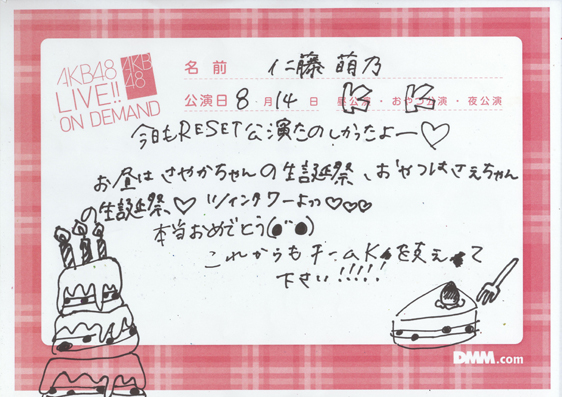 AKB48
LIVE!!
ON DEMAND
AKB
48
名前 仁藤萌乃
公演日 8・月14日 昼公演・おやつ公演・夜公演
K K
今日もRESET公演たのしかったよー♡
お昼はさやかちゃんの生誕祭、おやつはさえちゃん
の生誕祭♡ ツインタワーよっつ♡♡♡
本当おめでとう
これからもチームKを支えて
下さい!!!!!
DMM.com